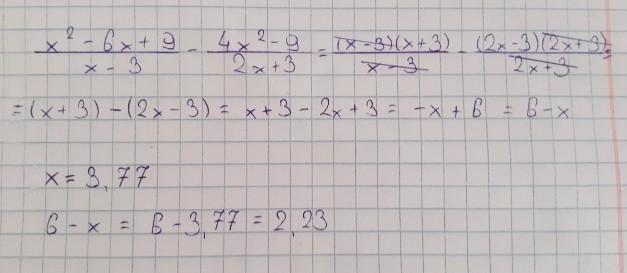 x² - 6x + 9 / x - 3 - 4x² - 9 / 2x + 3 = (x - 3)(x + 3) / x - 3 - (2x - 3)(2x + 3) / 2x + 3 =
= (x + 3) - (2x - 3) = x + 3 - 2x + 3 = -x + 6 = 6 - x
x = 3,77
6 - x = 6 - 3,77 = 2,23